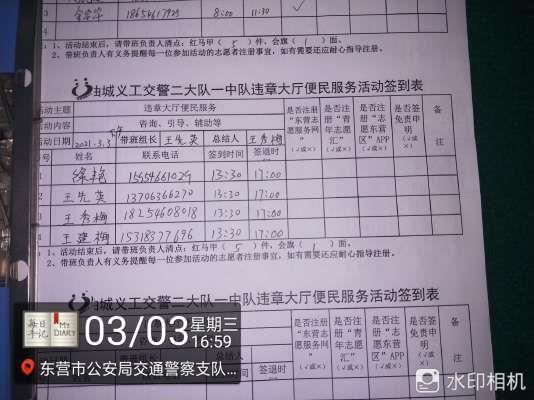 3 18654617925 8:00 11:30 ✓
1、活动结束后，请带班负责人清点：红马甲（5）件，会旗（1）面。
2、带班负责人有义务提醒每一位参加活动的志愿者注册事宜，如有需要还应耐心指导注册。
油城义工交警二大队一中队违章大厅便民服务活动签到表
活动主题 违章大厅便民服务 是否注册"志愿服务网"（√或×） 是否注册"青年志愿汇"（√或×） 是否注册"志愿东营区"APP（√或×） 是否签免责申明（√或×） 备注
活动内容 咨询、引导、辅助等
活动日期 2021.3.3 下午 带班组长 王先英 总结人 王秀梅
编号 姓名 联系电话 签到时间 签退时间
1 徐艳 15554661029 13:30 17:00
2 王先英 13706366270 13:30 17:00
3 王秀梅 18254608018 13:30 17:00
4 王建梅 15318377696 13:30 17:00
1、活动结束后，请带班负责人清点：红马甲（5）件，会旗（1）面。
2、带班负责人有义务提醒每一位参加活动的志愿者注册事宜，如有需要还应耐心指导注册。
油城义工交警二大队一中队违章大厅便民服务活动签到表
违章大厅便民服务 是否注册"志愿服务网"（√或×） 是否注册"青年志愿汇"（√或×） 是否注册"志愿东营区"APP（√或×） 是否签免责申明（√或×） 备注
咨询、引导、辅助等
总结人
签到时间 签退时
每日手记 My DIARY
03/03 星期三 16:59
东营市公安局交通警察支队...
水印相机